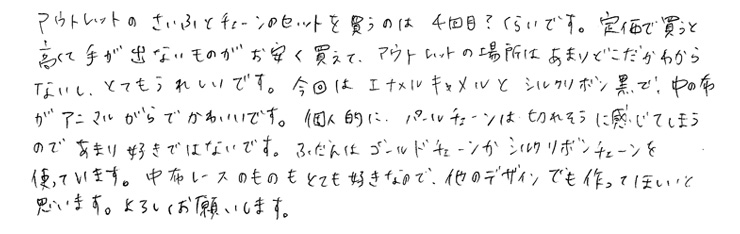 アウトレットのさいふとチェーンのセットを買うのは4回目?くらいです。定価で買うと
高くて手が出ないものがお安く買えて、アウトレットの場所はあまりどこだかわから
ないし、とてもうれしいです。今回はエナメルキャメルとシルクリボン黒で、中の布
がアニマルがらでかわいいです。個人的に、パールチェーンは切れそうに感じてしまう
のであまり好きではないです。ふだんはゴールドチェーンかシルクリボンチェーンを
使っています。中布レースのものもとても好きなので、他のデザインでも作ってほしいと
思います。よろしくお願いします。